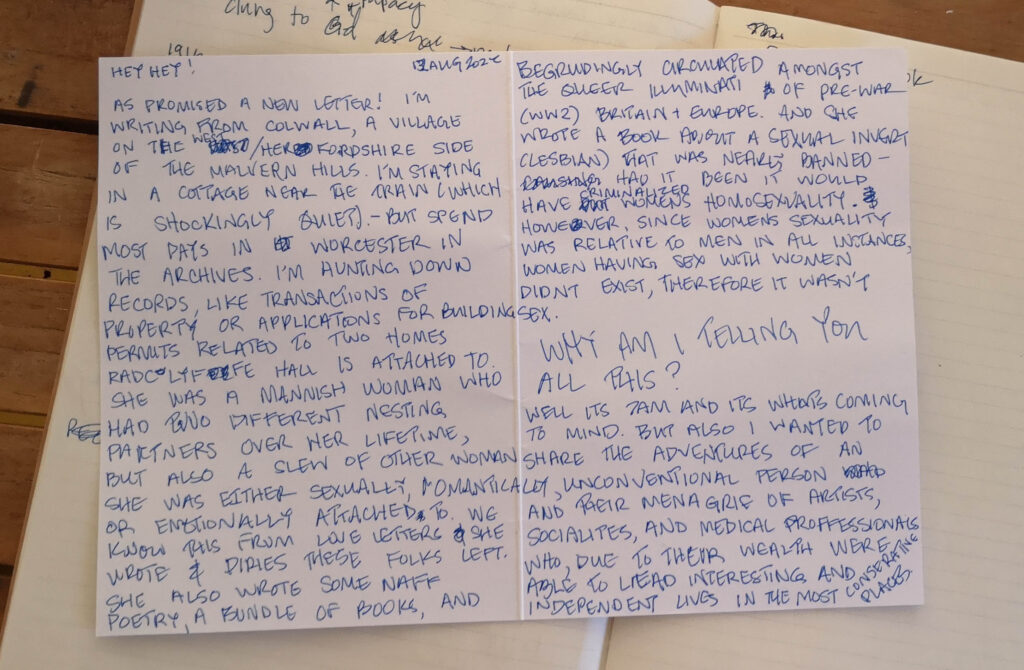 clung to
1916
HEY HEY!
12 AUG 2024
AS PROMISED A NEW LETTER! I'M
WRITING FROM COLWALL, A VILLAGE
ON THE WEST/HEREFORDSHIRE SIDE
OF THE MALVERN HILLS. I'M STAYING
IN A COTTAGE NEAR THE TRAIN (WHICH
IS SHOCKINGLY QUIET). - BUT SPEND
MOST DAYS IN WORCESTER IN
THE ARCHIVES. I'M HUNTING DOWN
RECORDS, LIKE TRANSACTIONS OF
PROPERTY OR APPLICATIONS FOR BUILDING
PERMITS RELATED TO TWO HOMES
RADCLYFFE HALL IS ATTACHED TO.
SHE WAS A MANNISH WOMAN WHO
HAD TWO DIFFERENT NESTING
PARTNERS OVER HER LIFETIME,
BUT ALSO A SLEW OF OTHER WOMAN
SHE WAS EITHER SEXUALLY, ROMANTICALLY,
OR EMOTIONALLY ATTACHED TO. WE
KNOW THIS FROM LOVE LETTERS SHE
WROTE & DIRIES THESE FOLKS LEFT.
SHE ALSO WROTE SOME NAFF
POETRY, A BUNDLE OF BOOKS, AND
BEGRUDINGLY CIRCULATED AMONGST
THE QUEER ILLUMINATI OF PRE-WAR
(WW2) BRITAIN + EUROPE. AND SHE
WROTE A BOOK ABOUT A SEXUAL INVERT
(LESBIAN) THAT WAS NEARLY BANNED -
HAD IT BEEN IT WOULD
HAVE CRIMINALIZED WOMENS HOMOSEXUALITY.
HOWEVER, SINCE WOMENS SEXUALITY
WAS RELATIVE TO MEN IN ALL INSTANCES,
WOMEN HAVING SEX WITH WOMEN
DIDNT EXIST, THEREFORE IT WASN'T
SEX.
WHY AM I TELLING YOU
ALL THIS?
WELL ITS 7AM AND ITS WHATS COMING
TO MIND. BUT ALSO I WANTED TO
SHARE THE ADVENTURES OF AN
UNCONVENTIONAL PERSON
AND THEIR MENAGRIE OF ARTISTS,
SOCIALITES, AND MEDICAL PROFFESSIONALS
WHO, DUE TO THEIR WEALTH WERE
ABLE TO LEAD INTERESTING AND
INDEPENDENT LIVES IN THE MOST CONSERATIVE
PLACES